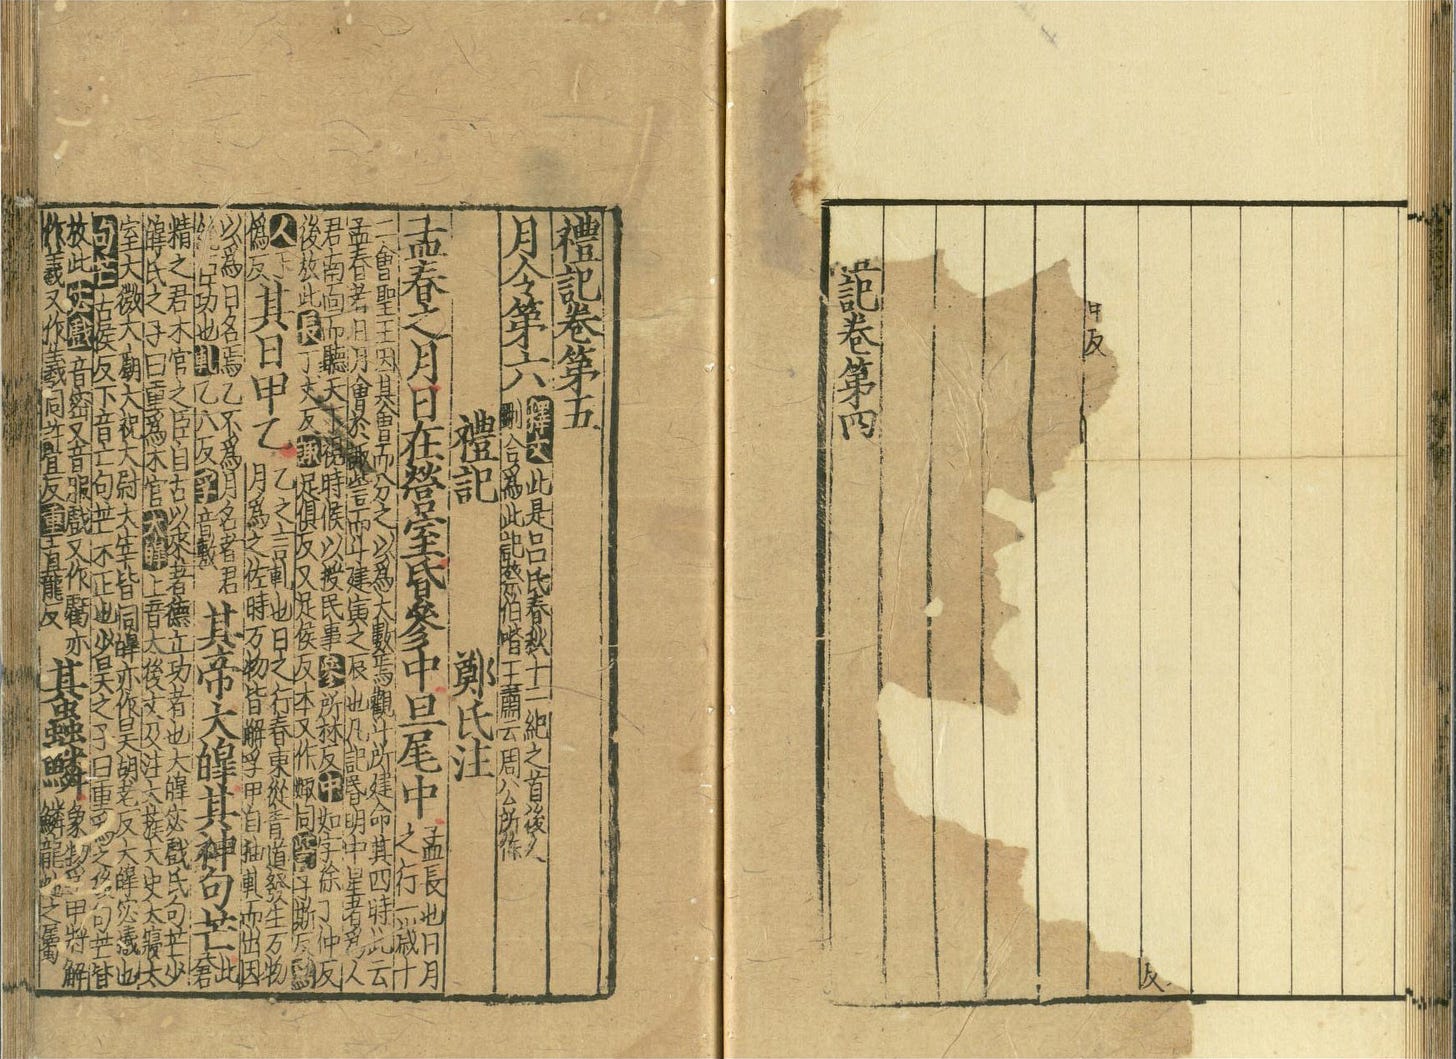 反
反
記卷第四
禮記卷第五
月令第六 釋文 此是吕氏春秋十二紀之首後人
刪合爲此記蔡伯喈王肅云周公所作
禮記 鄭氏注
孟春之月日在營室昏參中旦尾中 孟長也日月
之行一歲十
二會聖王因其會而分之以爲大數焉觀斗所建命其四時此云
孟春者日月會於諏訾而斗建寅之辰也凡記昏明中星者爲人
君南面而聽天下視時候以授民事 參所林反中如字徐丁仲反
後放此長丁丈反諏足俱反又足侯反本又作娵同訾子斯反爲
人下
爲反 其日甲乙 乙之言軋也日之行春東從青道發生万物
月爲之佐時万物皆解孚甲自抽軋而出因
以爲日名焉乙不爲月名者君
統臣功也軋乙八反孚音敷 其帝大皥其神句芒 此
蒼
精之君木官之臣自古以來著德立功者也大皥宓戲氏句芒少
皥氏之子曰重爲木官 大皥上音太後文及注大蔟大史大寢大
室大微大廟大祝大尉大宰皆同皥亦作昊胡老反大皥宓羲也
句芒古侯反下音亡句芒木正也少昊之子曰重爲之後句芒皆
放此宓戲音密又音服戲又作虧亦
作羲又作羲同許宜反重直龍反 其蟲鱗 象物孚甲將解
鱗龍蛇之屬